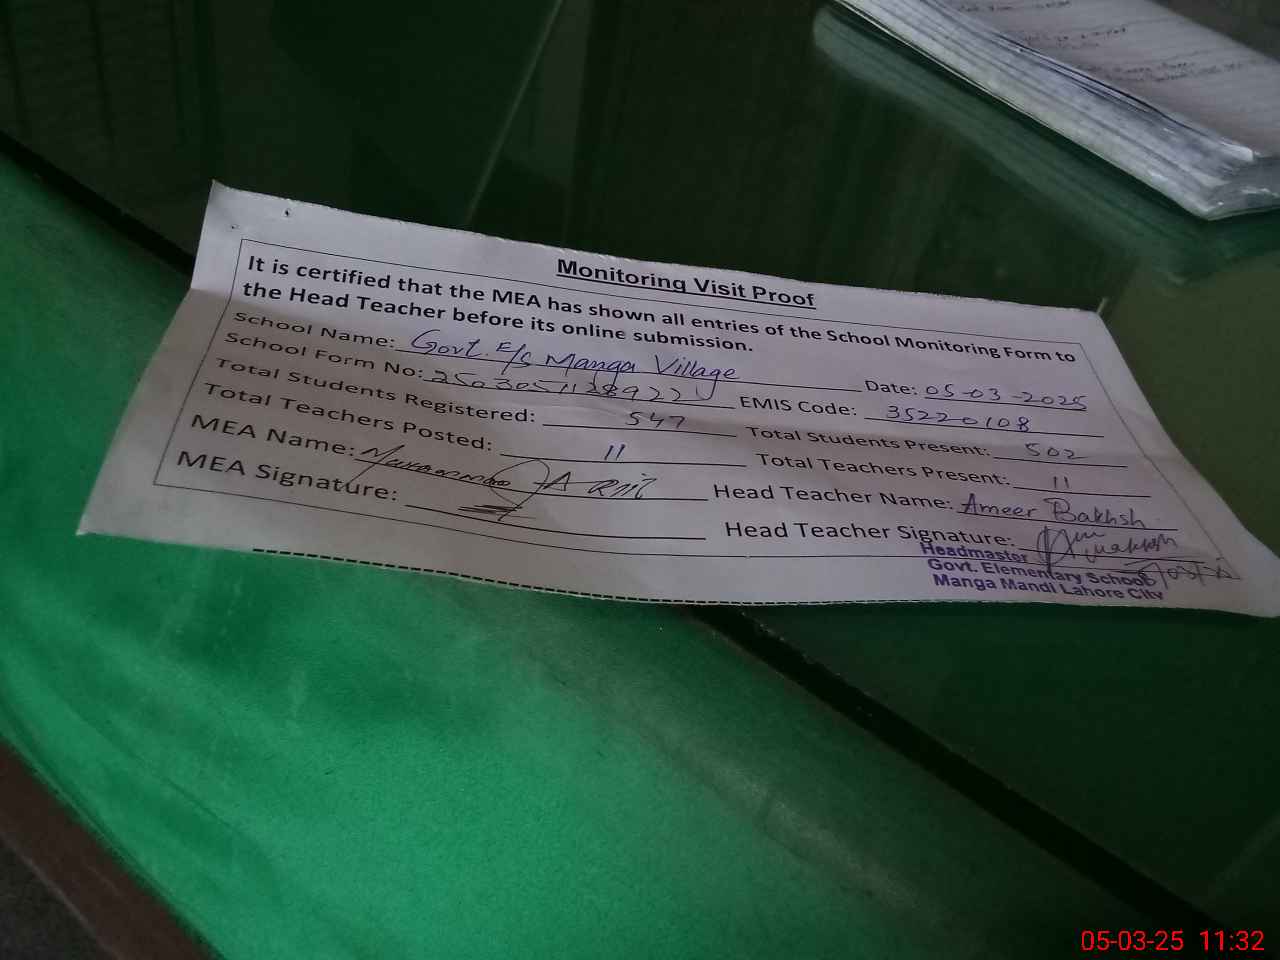 Monitoring Visit Proof
It is certified that the MEA has shown all entries of the School Monitoring Form to
the Head Teacher before its online submission.
School Name: Govt. E/S Manga Village Date: 05-03-2025
School Form No: EMIS Code: 35220108
Total Students Registered: 547 Total Students Present: 502
Total Teachers Posted: 11 Total Teachers Present: 11
MEA Name: Head Teacher Name: Ameer Bakhsh
MEA Signature: Head Teacher Signature:
Headmaster
Govt. Elementary School
Manga Mandi Lahore City
05-03-25 11:32